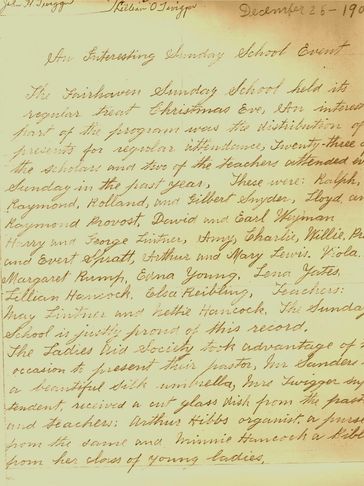 John H Swigger Lillian O Swigger
December 25-190
An Interesting Sunday School Event
The Fairhaven Sunday School held its
regular treat Christmas Eve, An interes
part of the program was the distribution of
presents for regular attendance, Twenty-three o
the scholars and two of the teachers attended
Sunday in the past year, These were: Ralph,
Raymond, Rolland, and Gilbert Snyder, Lloyd, an
Raymond Provost, David and Earl Wigman
Harry and George Lintner, Amy, Charlie, Willie,
and Evert Spratt, Arthur and Mary Lewis, Viola,
Margaret Rump, Edna Young, Lena Yates,
Lillian Hancock, Elsa Keibling, Teachers:
May Lindner and Nettie Hancock. The Sunda
School is justly proud of this record.
The Ladies Aid Society took advantage of
occasion to present their pastor, Mr Sanders
a beautiful silk umbrella, Mrs Swigger
tendent, received a cut glass dish from the
and teachers: Arthur Hibbs organist, a purse
from the same and Minnie Hancock a Bibl
from her class of young ladies.